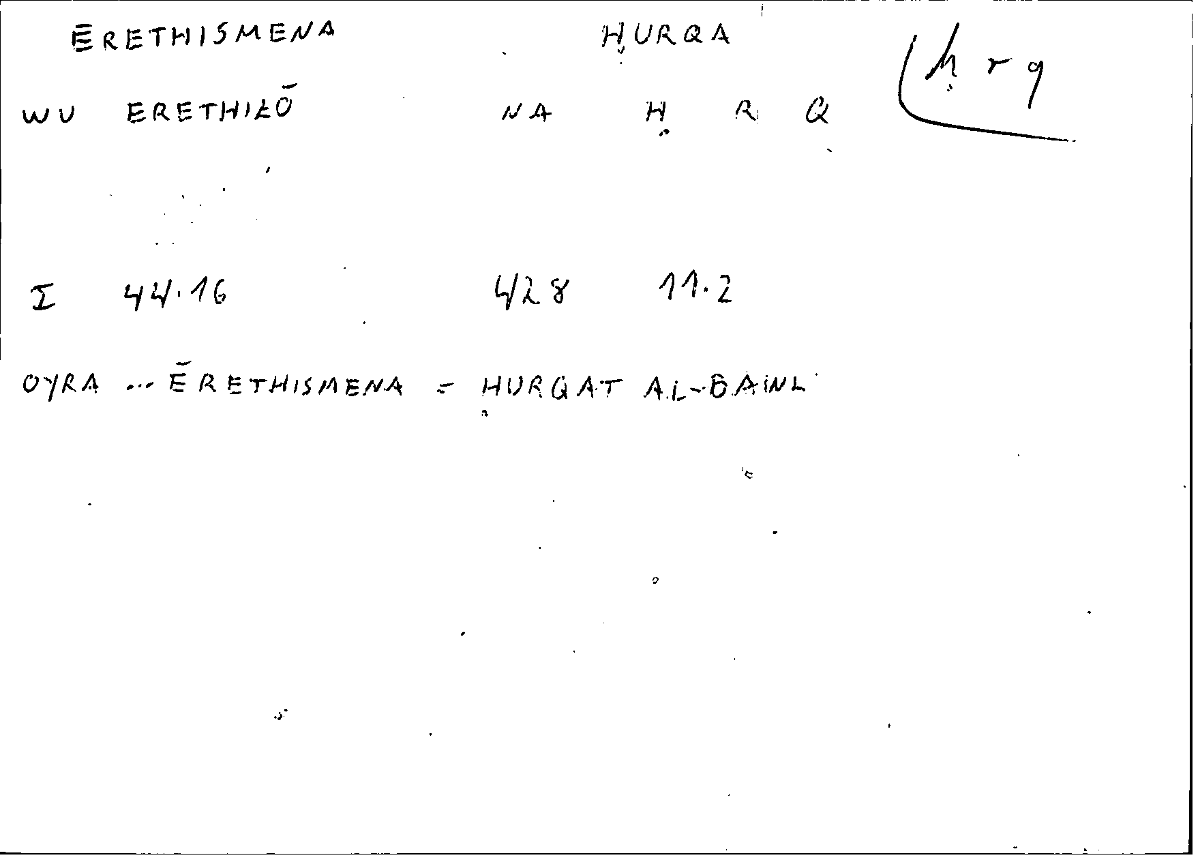 ĒRETHISMENA ḤURQA
ḥrq
WU ERETHIZŌ NA Ḥ R Q
I 44.16 428 11.2
OYRA ... ĒRETHISMENA = ḤURQAT AL-BAWL